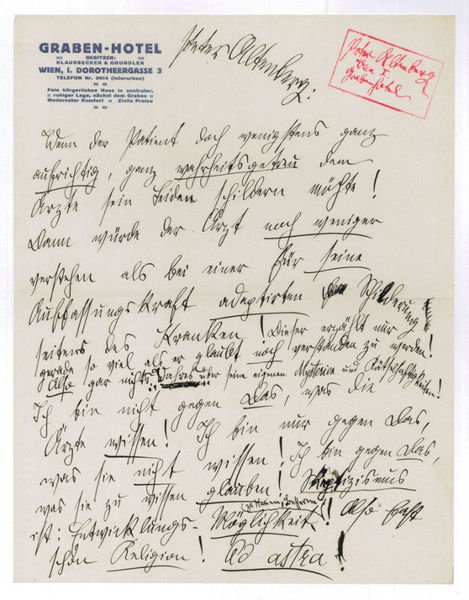 GRABEN-HOTEL
BESITZER:
KLAUSBECKER & GRUNDLER
WIEN, I. DOROTHEERGASSE 3
TELEFON Nr. 9614 (Interurban)
Fein bürgerliches Haus in zentraler,
ruhiger Lage, nächst dem Graben
Modernster Komfort Zivile Preise
Peter Altenberg.
Peter Altenberg
Wien I
Grabenhotel
Wenn der Patient doch wenigstens ganz
aufrichtig, ganz wahrheitsgetreu dem
Ärzte sein Leiden schildern möchte!
Dann würde der Arzt noch weniger
verstehen als bei einer für seine
Auffassungskraft adaptirten Schilderung
seitens des Kranken! Dieser erzählt nur
gerade so viel als er glaubt noch verstanden zu werden!
Also gar nichts über seine eigenen Mysterien und Räthselhaftigkeiten!
Ich bin nicht gegen Das, was die
Ärzte wissen! Ich bin nur gegen Das,
was sie nicht wissen! Ich bin gegen Das,
was sie zu wissen glauben! Skeptizismus
ist: Entwicklungs-Möglichkeit! Also fast
schon Religion! Ad astra!